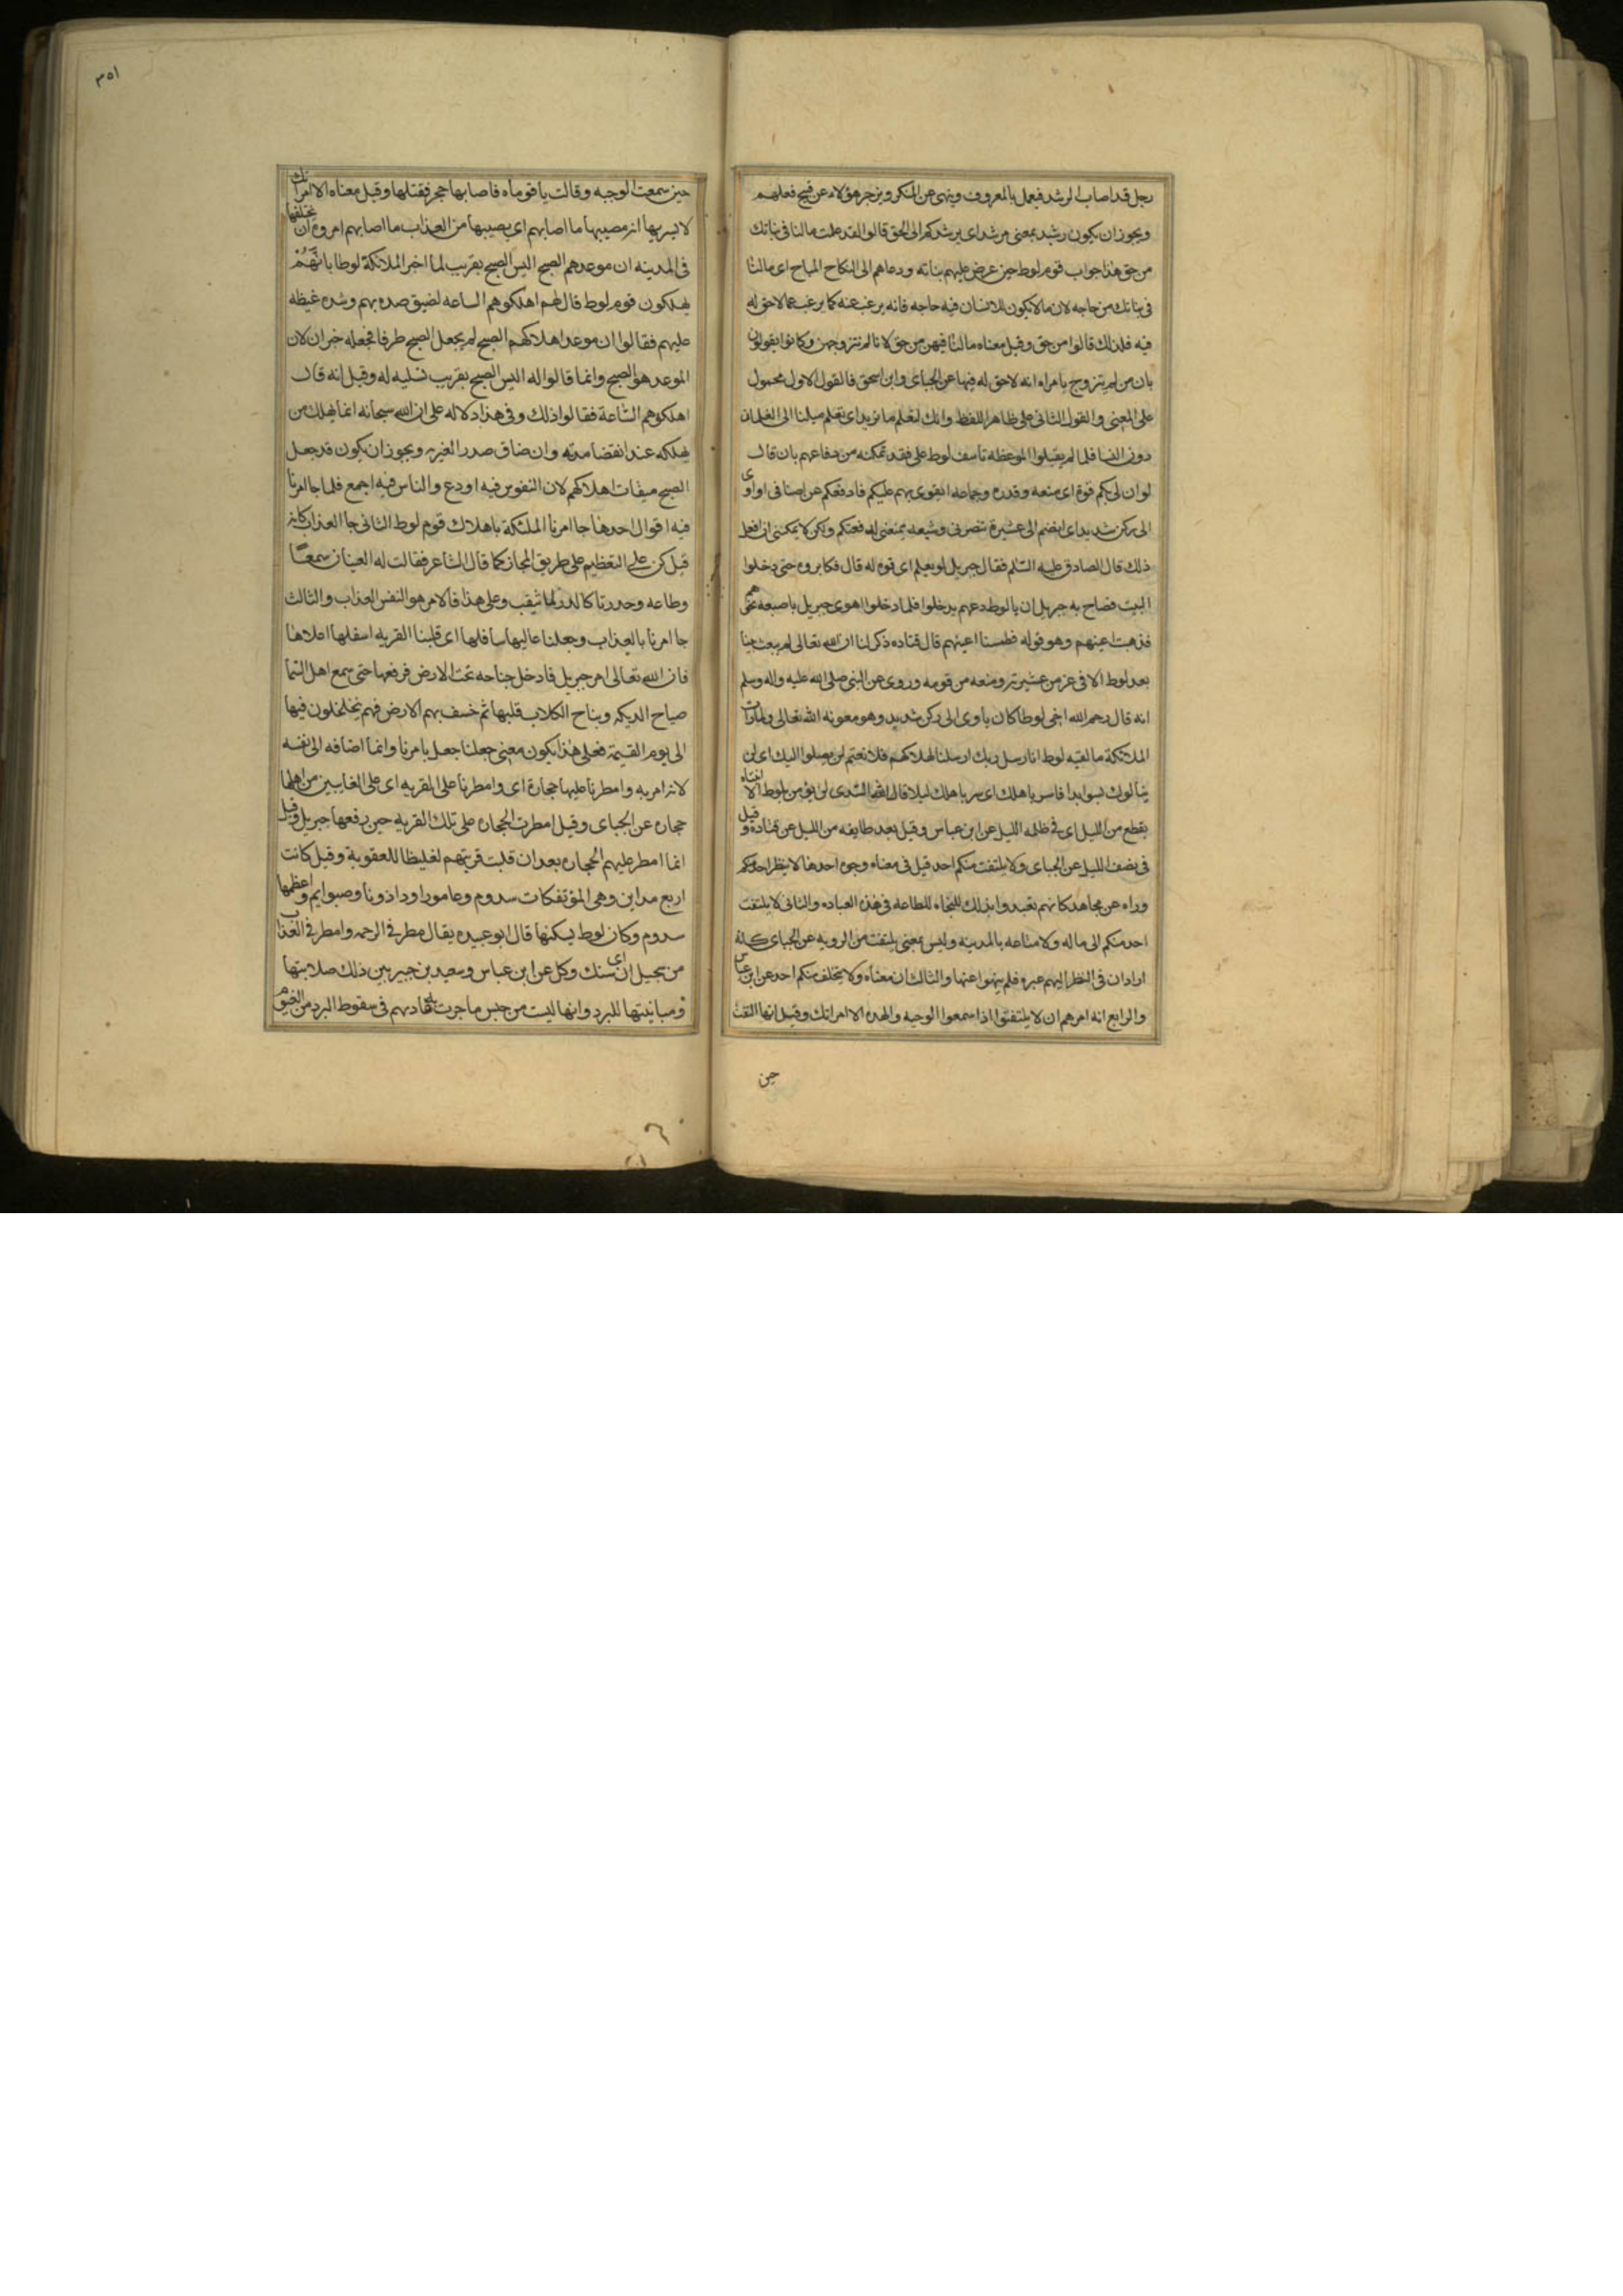 رجل قد اصاب الرشد فيعمل بالمعروف وينهى عن المنكر ويزجر هؤلاء عن قبيح فعلهم
ويجوز ان يكون رشيد بمعنى مرشد اى يرشدكم الى الحق قالوا لقد علمت مالنا فى بناتك
من حق هذا جواب قوم لوط حين عرض عليهم بناته ودعاهم الى النكاح المباح اى مالنا
فى بناتك من حاجه لان مالايكون للانسان فيه حاجه فانه يرغب عنه كما يرغب عما لاحق له
فيه فلذلك قالوا من حق وقيل معناه مالنا فيهن من حق لانا لم نتزوجهن وكانوا يقولون
بان من لم يتزوج بامراه انه لاحق له فيها عن الجباى وابن اسحق فالقول الاول محمول
على المعنى والقول الثانى على ظاهر اللفظ وانك لتعلم ما نريد اى تعلم ميلنا الى الغلمان
دون النسا فلما لم يقبلوا الموعظه تأسف لوط على فقد تمكنه من دفاعهم بان قال
لو ان لى بكم قوة اى منعه وقدره وجماعه اتقوى بهم عليكم فادفعكم عن اضيافى او اوى
الى ركن شديد اى انضم الى عشيرة تنصرنى وشيعه تمنعنى لدفعتكم ولكن لا يمكننى ان افعل
ذلك قال الصادق عليه السلم فقال جبريل لو يعلم اى قوه له قال فكابروه حتى دخلوا
البيت فصاح به جبريل ان يا لوط دعهم يدخلوا فلما دخلوا اهوى جبريل باصبعه نحوهم
فذهبت اعينهم وهو قوله فطمسنا اعينهم قال قتاده ذكر لنا ان الله تعالى لم يبعث نبيا
بعد لوط الا فى عز من عشيرته ومنعه من قومه وروى عن النبى صلى الله عليه واله وسلم
انه قال رحم الله اخى لوطا كان ياوى الى ركن شديد وهو معونه الله تعالى ولما رات
الملائكة ما لقيه لوط انا رسل ربك ارسلنا لهلاكهم فلا تغتم لن يصلوا اليك اى لن
ينالوك بسو ابدا فاسر باهلك اى سر باهلك ليلا قال السدى لم يؤمن بلوط الا ابنتاه
بقطع من الليل اى فى ظلمه الليل عن ابن عباس وقيل بعد طايفه من الليل عن قتاده وقيل
فى نصف الليل عن الجباى ولا يلتفت منكم احد قيل فى معناه وجوه احدها لا ينظر احدكم
وراه عن مجاهد كانهم تعبدوا بذلك للنجاه للطاعه فى هذه العباده والثانى لا يلتفت
احد منكم الى ماله ولا متاعه بالمدينه وليس بمعنى يلتفت من الرويه عن الجباى كانه
اراد ان فى النظر اليهم عبره فلم ينهوا عنها والثالث ان معناه ولا يتخلف منكم احد عن ابن عباس
والرابع انه امرهم ان لا يلتفتوا اذا سمعوا الوجبه والهده الا امراتك وقيل انها التفتت
حين
٣٥١
حين سمعت الوجبه وقالت يا قوماه فاصابها حجر فقتلها وقيل معناه الا امراتك
لا يسر بها انه مصيبها ما اصابهم اى يصيبها من العذاب ما اصابهم امروه ان يخلفها
فى المدينه ان موعدهم الصبح اليس الصبح بقريب لما اخبر الملائكة لوطا بانهم
يهلكون قوم لوط قال لهم اهلكوهم الساعه لضيق صدره بهم وشده غيظه
عليهم فقالوا ان موعد اهلاكهم الصبح لم يجعل الصبح ظرفا فجعله خبر ان لان
الموعد هو الصبح وانما قالوا له اليس الصبح بقريب تسليه له وقيل انه قال
اهلكوهم الساعة فقالوا ذلك وفى هذا دلاله على ان الله سبحانه انما يهلك من
يهلكه عند انقضا مدته وان ضاق صدر الغير به ويجوز ان يكون قد جعل
الصبح ميقات اهلاكهم لان النفوس فيه اودع والناس فيه اجمع فلما جا امرنا
فيه اقوال احدها جا امرنا الملئكة باهلاك قوم لوط الثانى جا العذاب كانه
قيل كن على التعظيم على طريق المجاز كما قال الشاعر فقالت له العينان سمعا
وطاعه وحدرتا كالدر لما يثقب وعلى هذا فالامر هو النفس العذاب والثالث
جا امرنا بالعذاب وجعلنا عاليها سافلها اى قلبنا القريه اسفلها اعلاها
فان الله تعالى امر جبريل فادخل جناحه تحت الارض فرفعها حتى سمع اهل السما
صياح الديكه ونباح الكلاب ثم قلبها ثم خسف بهم الارض فهم يتخلخلون فيها
الى يوم القيمة فعلى هذا يكون معنى جعلنا جعل بامرنا وانما اضافه الى نفسه
لانه امر به وامطرنا عليها حجارة اى وامطرنا على القريه اى على الغايبين من اهلها
حجاره عن الجباى وقيل امطرت الحجاره على تلك القريه حين رفعها جبريل وقيل
انما امطر عليهم الحجاره بعد ان قلبت قريتهم تغليظا للعقوبة وقيل كانت
اربع مداين وهى المؤتفكات سدوم وعامورا وداذونا وصبوايم واعظمها
سدوم وكان لوط يسكنها قال ابو عبيده يقال مطر فى الرحمه وامطر فى العذاب
من سجيل اى سنك وكل عن ابن عباس وسعيد بن جبير بين ذلك صلابتها
ومباينتها للبرد وانها ليست من جنس ما جرت به عادتهم فى سقوط البرد من الغيوم